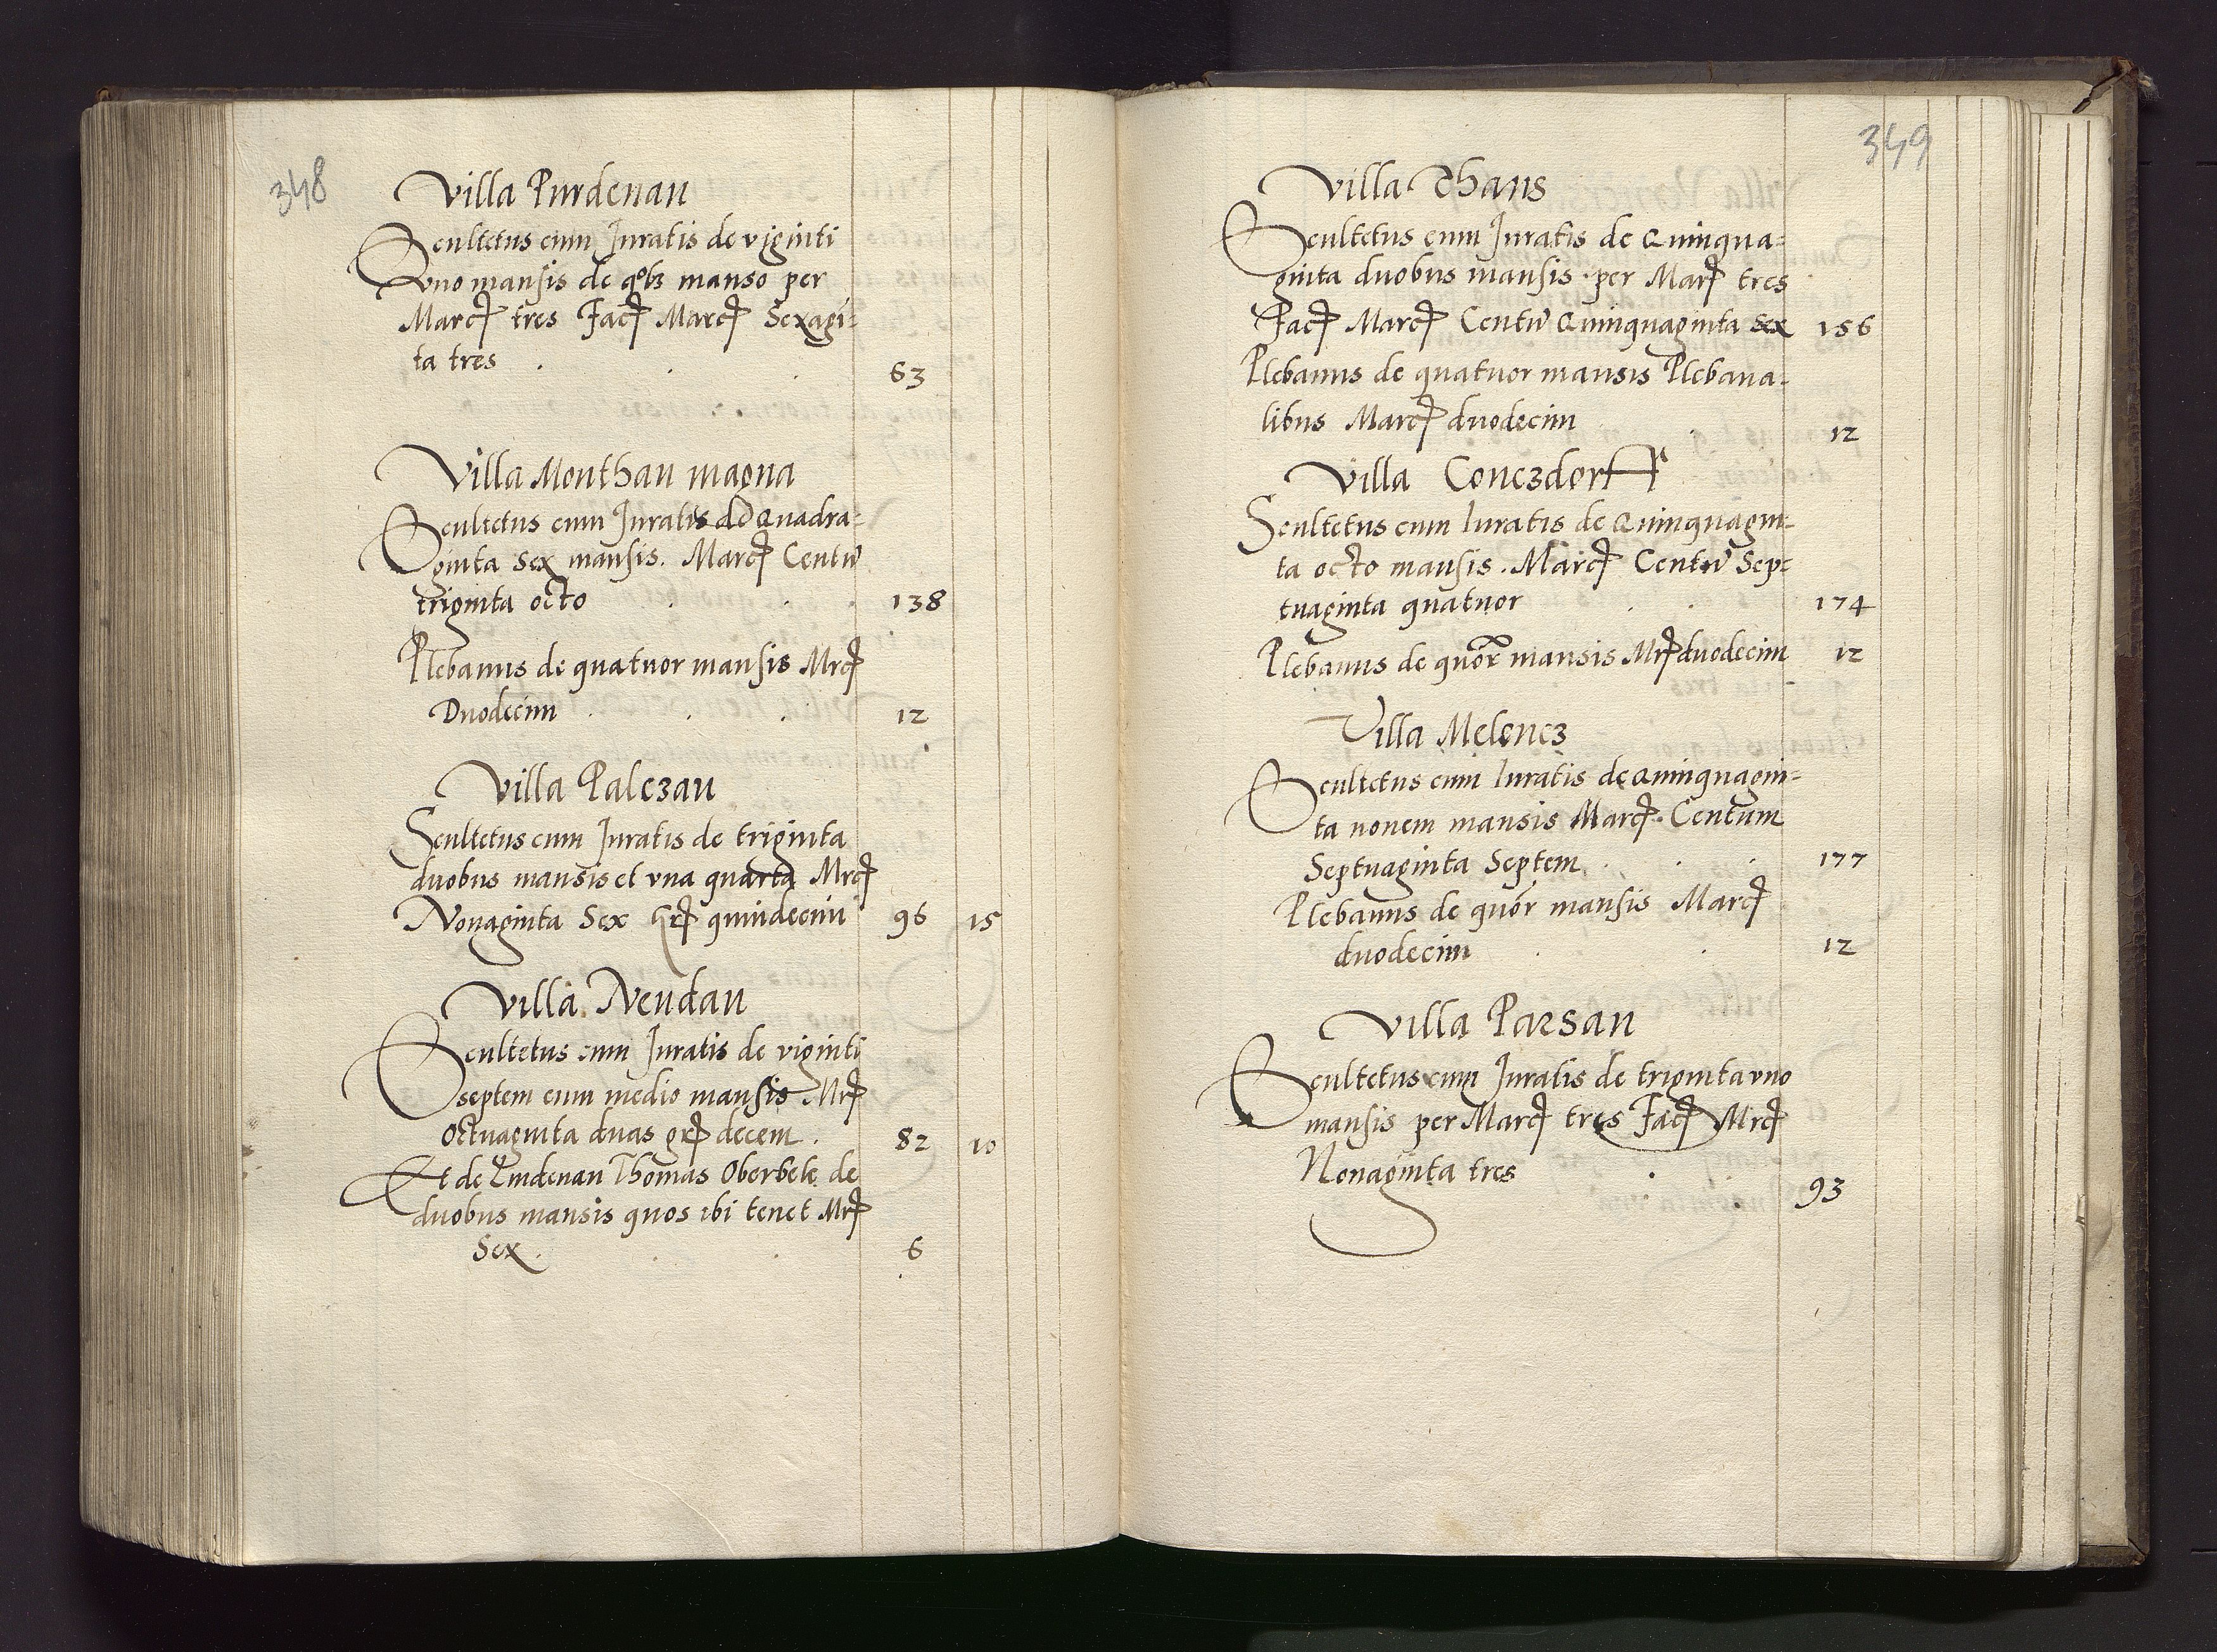 348
Villa Purdenau
Scultetus cum Juratis de viginti
vno mansis de qolz manso per
Marc tres Fac Marc Sexagi-
ta tres 63
Villa Monthau magna
Scultetus cum Juratis de Quadra-
ginta Sex mansis. Marc Centū
triginta octo 138
Plebanus de quatuor mansis Mrc
Duodecim 12
Villa Palczau
Scultetus cum Juratis de triginta
duobus mansis et vna quarta Mrc
Nonaginta Sex gr quindecim 96 15
Villa Neudau
Scultetus cum Juratis de viginti
septem cum medio mansis Mr
Octuaginta duas gr decem. 82 10
Et de Lindenau Thomas Oberbek de
duobus mansis quos ibi tenet Mr
Sex. 6
349
Villa Thans
Scultetus cum Juratis de Quinqua-
ginta duobus mansis per Mar tres
Fac Marc Centū Quinquaginta sex 156
Plebanus de quatuor mansis Plebana-
libus Marc duodecim 12
Villa Conczdorff
Scultetus cum Iuratis de Quinquagin-
ta octo mansis. Marc Centū Sep-
tuaginta quatuor 174
Plebanus de quor mansis Mr duodecim 12
Villa Melencz
Scultetus cum Iuratis de Quinquagin-
ta nouem mansis Marc. Centum
Septuaginta Septem. 177
Plebanus de quor mansis Marc
duodecim 12
Villa Parsau
Scultetus cum Juratis de triginta vno
mansis per Marc tres Fac Mrc
Nonaginta tres 93